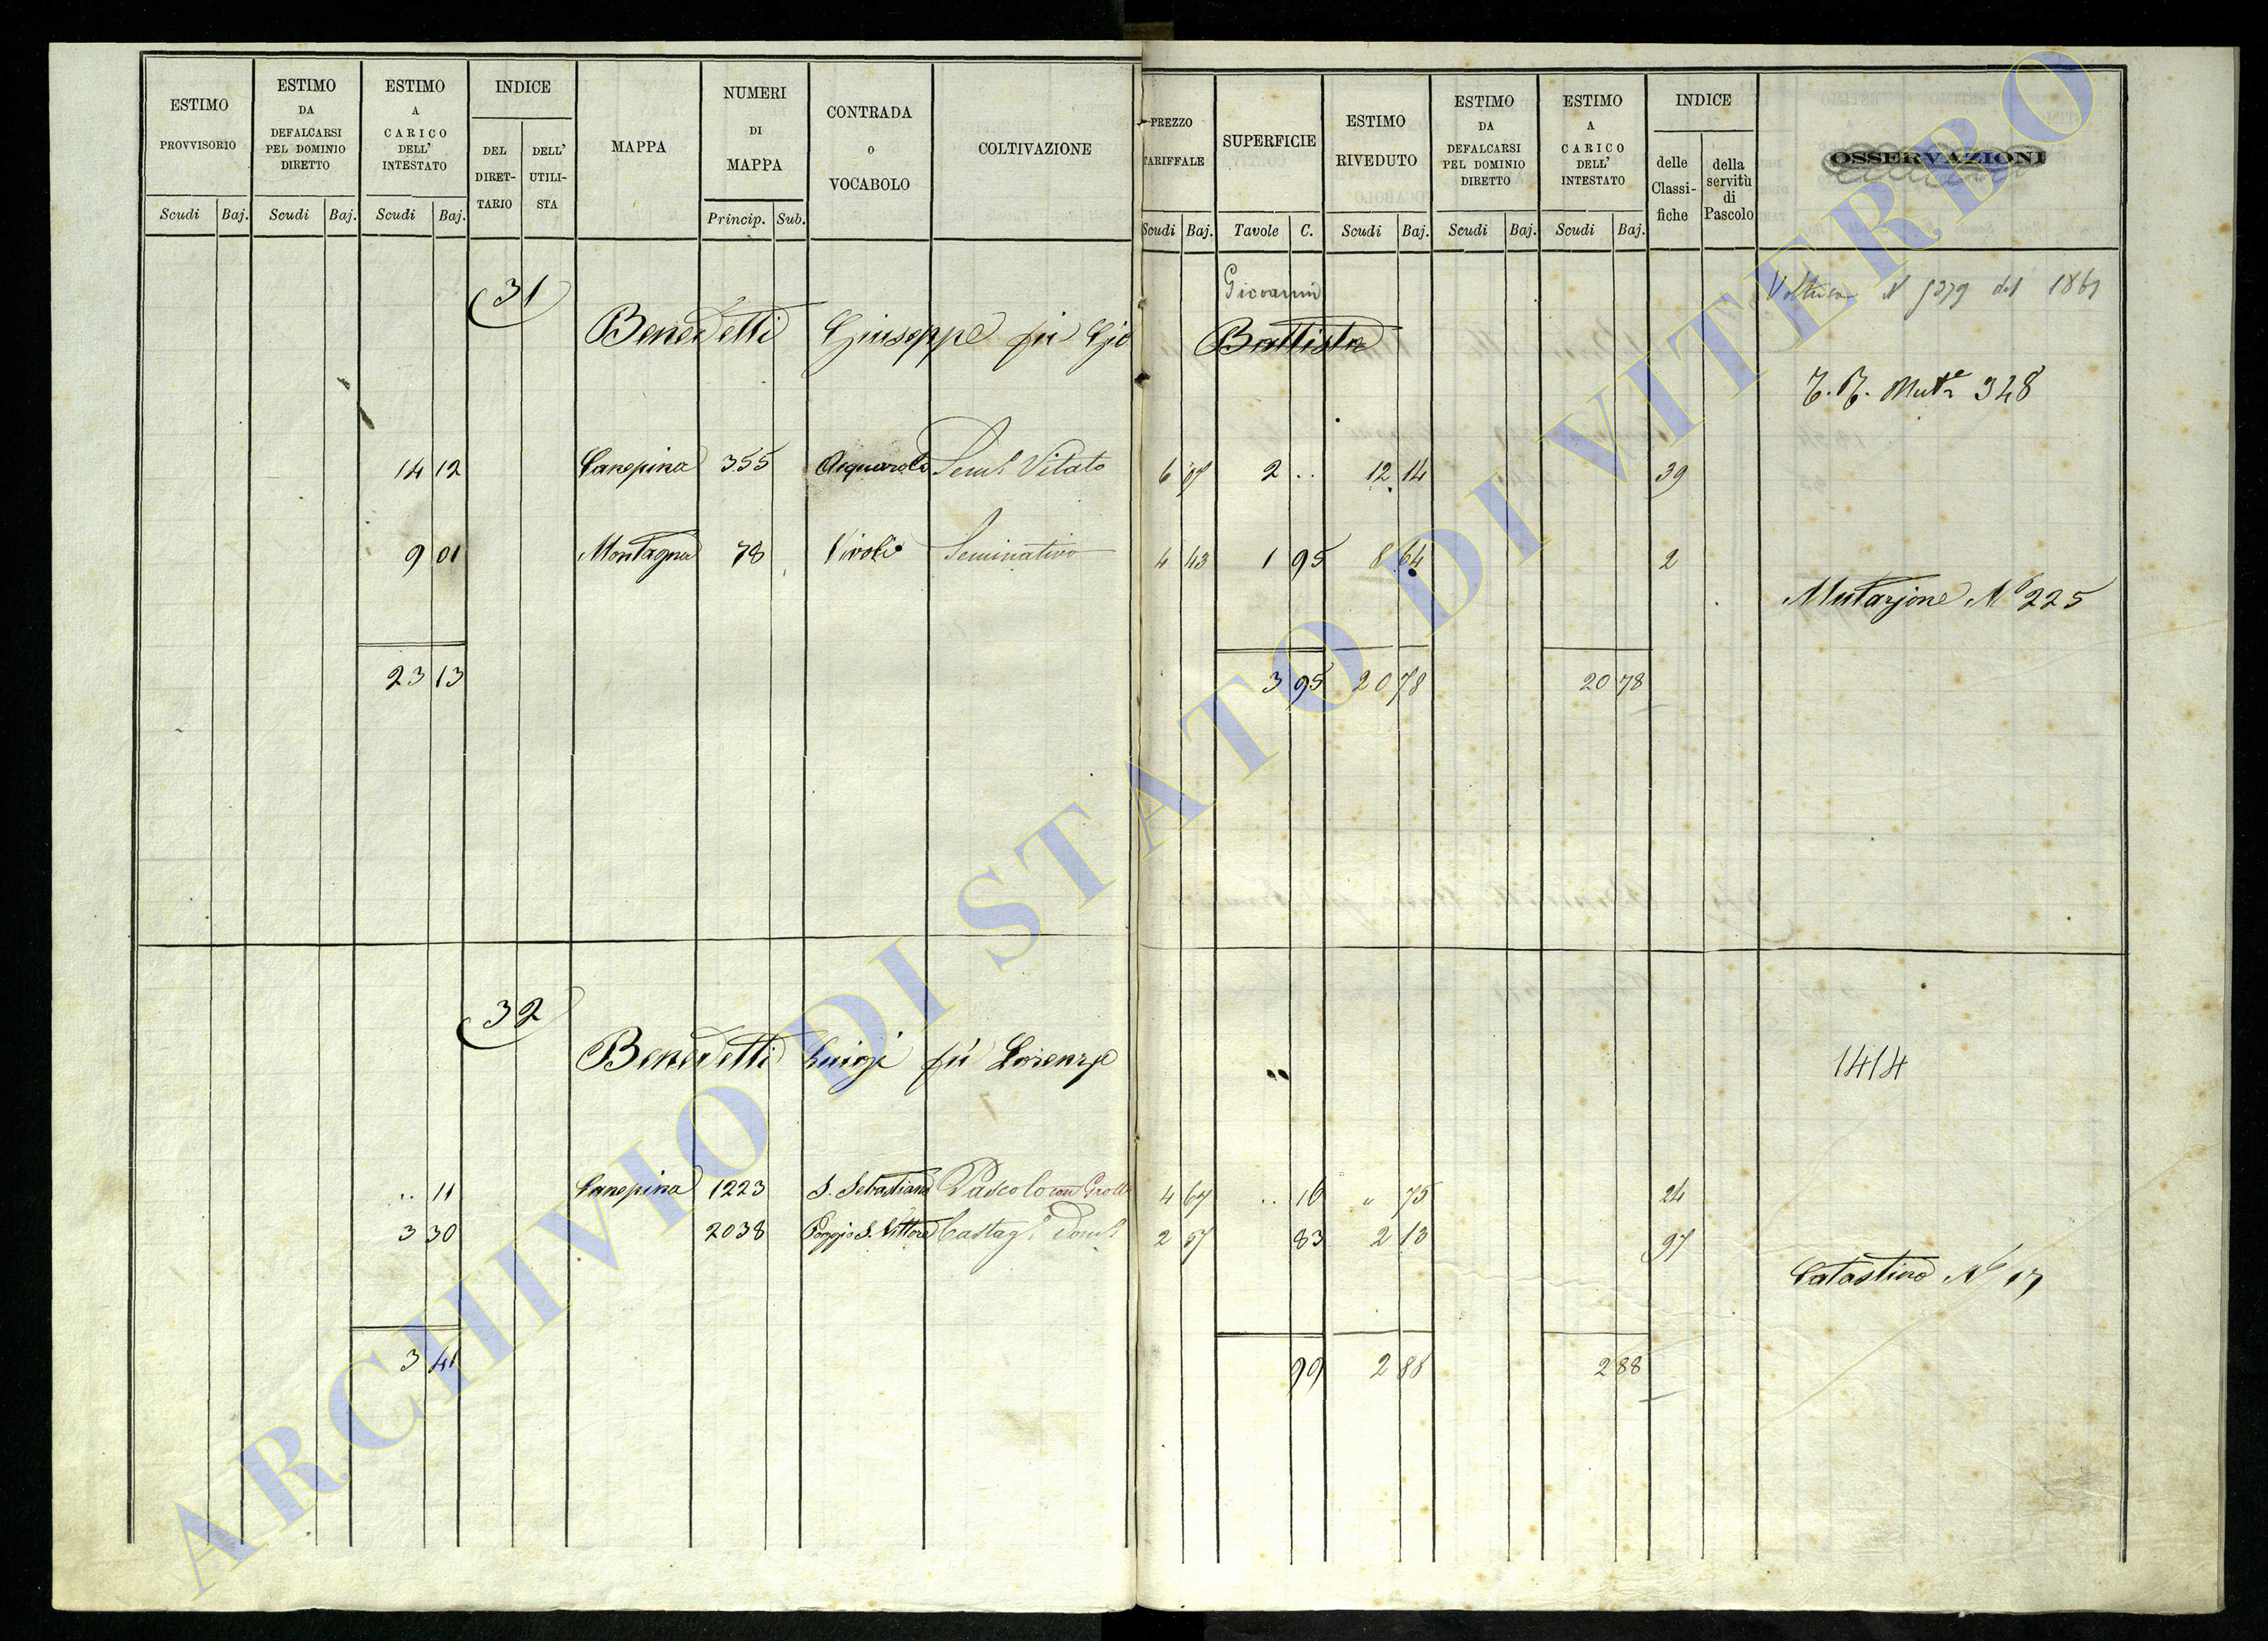 ESTIMO PROVVISORIO
ESTIMO DA DEFALCARSI PEL DOMINIO DIRETTO
ESTIMO A CARICO DELL' INTESTATO
INDICE
DEL DIRET-TARIO
DELL' UTILI-STA
MAPPA
NUMERI DI MAPPA
CONTRADA o VOCABOLO
COLTIVAZIONE
PREZZO TARIFFALE
SUPERFICIE
ESTIMO RIVEDUTO
ESTIMO DA DEFALCARSI PEL DOMINIO DIRETTO
ESTIMO A CARICO DELL' INTESTATO
INDICE
delle Classi-fiche
della servitù di Pascolo
OSSERVAZIONI
Scudi Baj. Scudi Baj. Scudi Baj. Princip. Sub. Scudi Baj. Tavole C. Scudi Baj. Scudi Baj. Scudi Baj.
31
Giovanni
del 1869
Benedetti Giuseppe fu Gio Battista
348
14 12 Canepina 355 Acquarola Seml Vitato 6 07 2 .. 12 14 39
9 01 Montagna 78 Vivoli Seminativo 4 43 1 95 8 64 2
Mutazione No 225
23 13 3 95 20 78 20 78
32
Benedetti Luigi fu Lorenzo
1414
.. 11 Canepina 1223 S. Sebastiano Pascolo con Grotta 4 67 .. 16 " 75 24
3 30 2038 Poggio S. Vittore Castagl Doml 2 57 83 2 13 97
Catastino No 17
3 41 99 2 88 2 88
ARCHIVIO DI STATO DI VITERBO